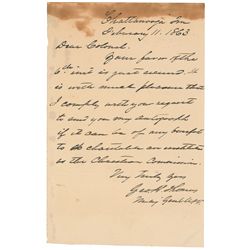 Chattanooga Ten
February 11. 1863
Dear Colonel.
Your favor of the
6th inst is just received. It
is with much pleasure that
I comply with your request
to send you my autograph
if it can be of any benefit
to a charitable an institution
as the Christian Commission.
Very Truly Yours
Geo. H. Thomas
Maj Genl U.S.